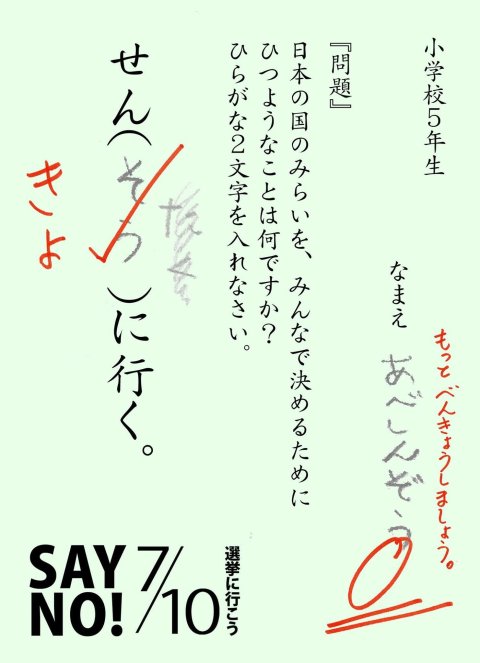 小学校5年生
なまえ あべしんぞう
もっとべんきょうしましょう。
0
『問題』
日本の国のみらいを、みんなで決めるために
ひつようなことは何ですか?
ひらがな2文字を入れなさい。
せん(そう)に行く。
きょ
SAY
NO!
7/10
選挙に行こう